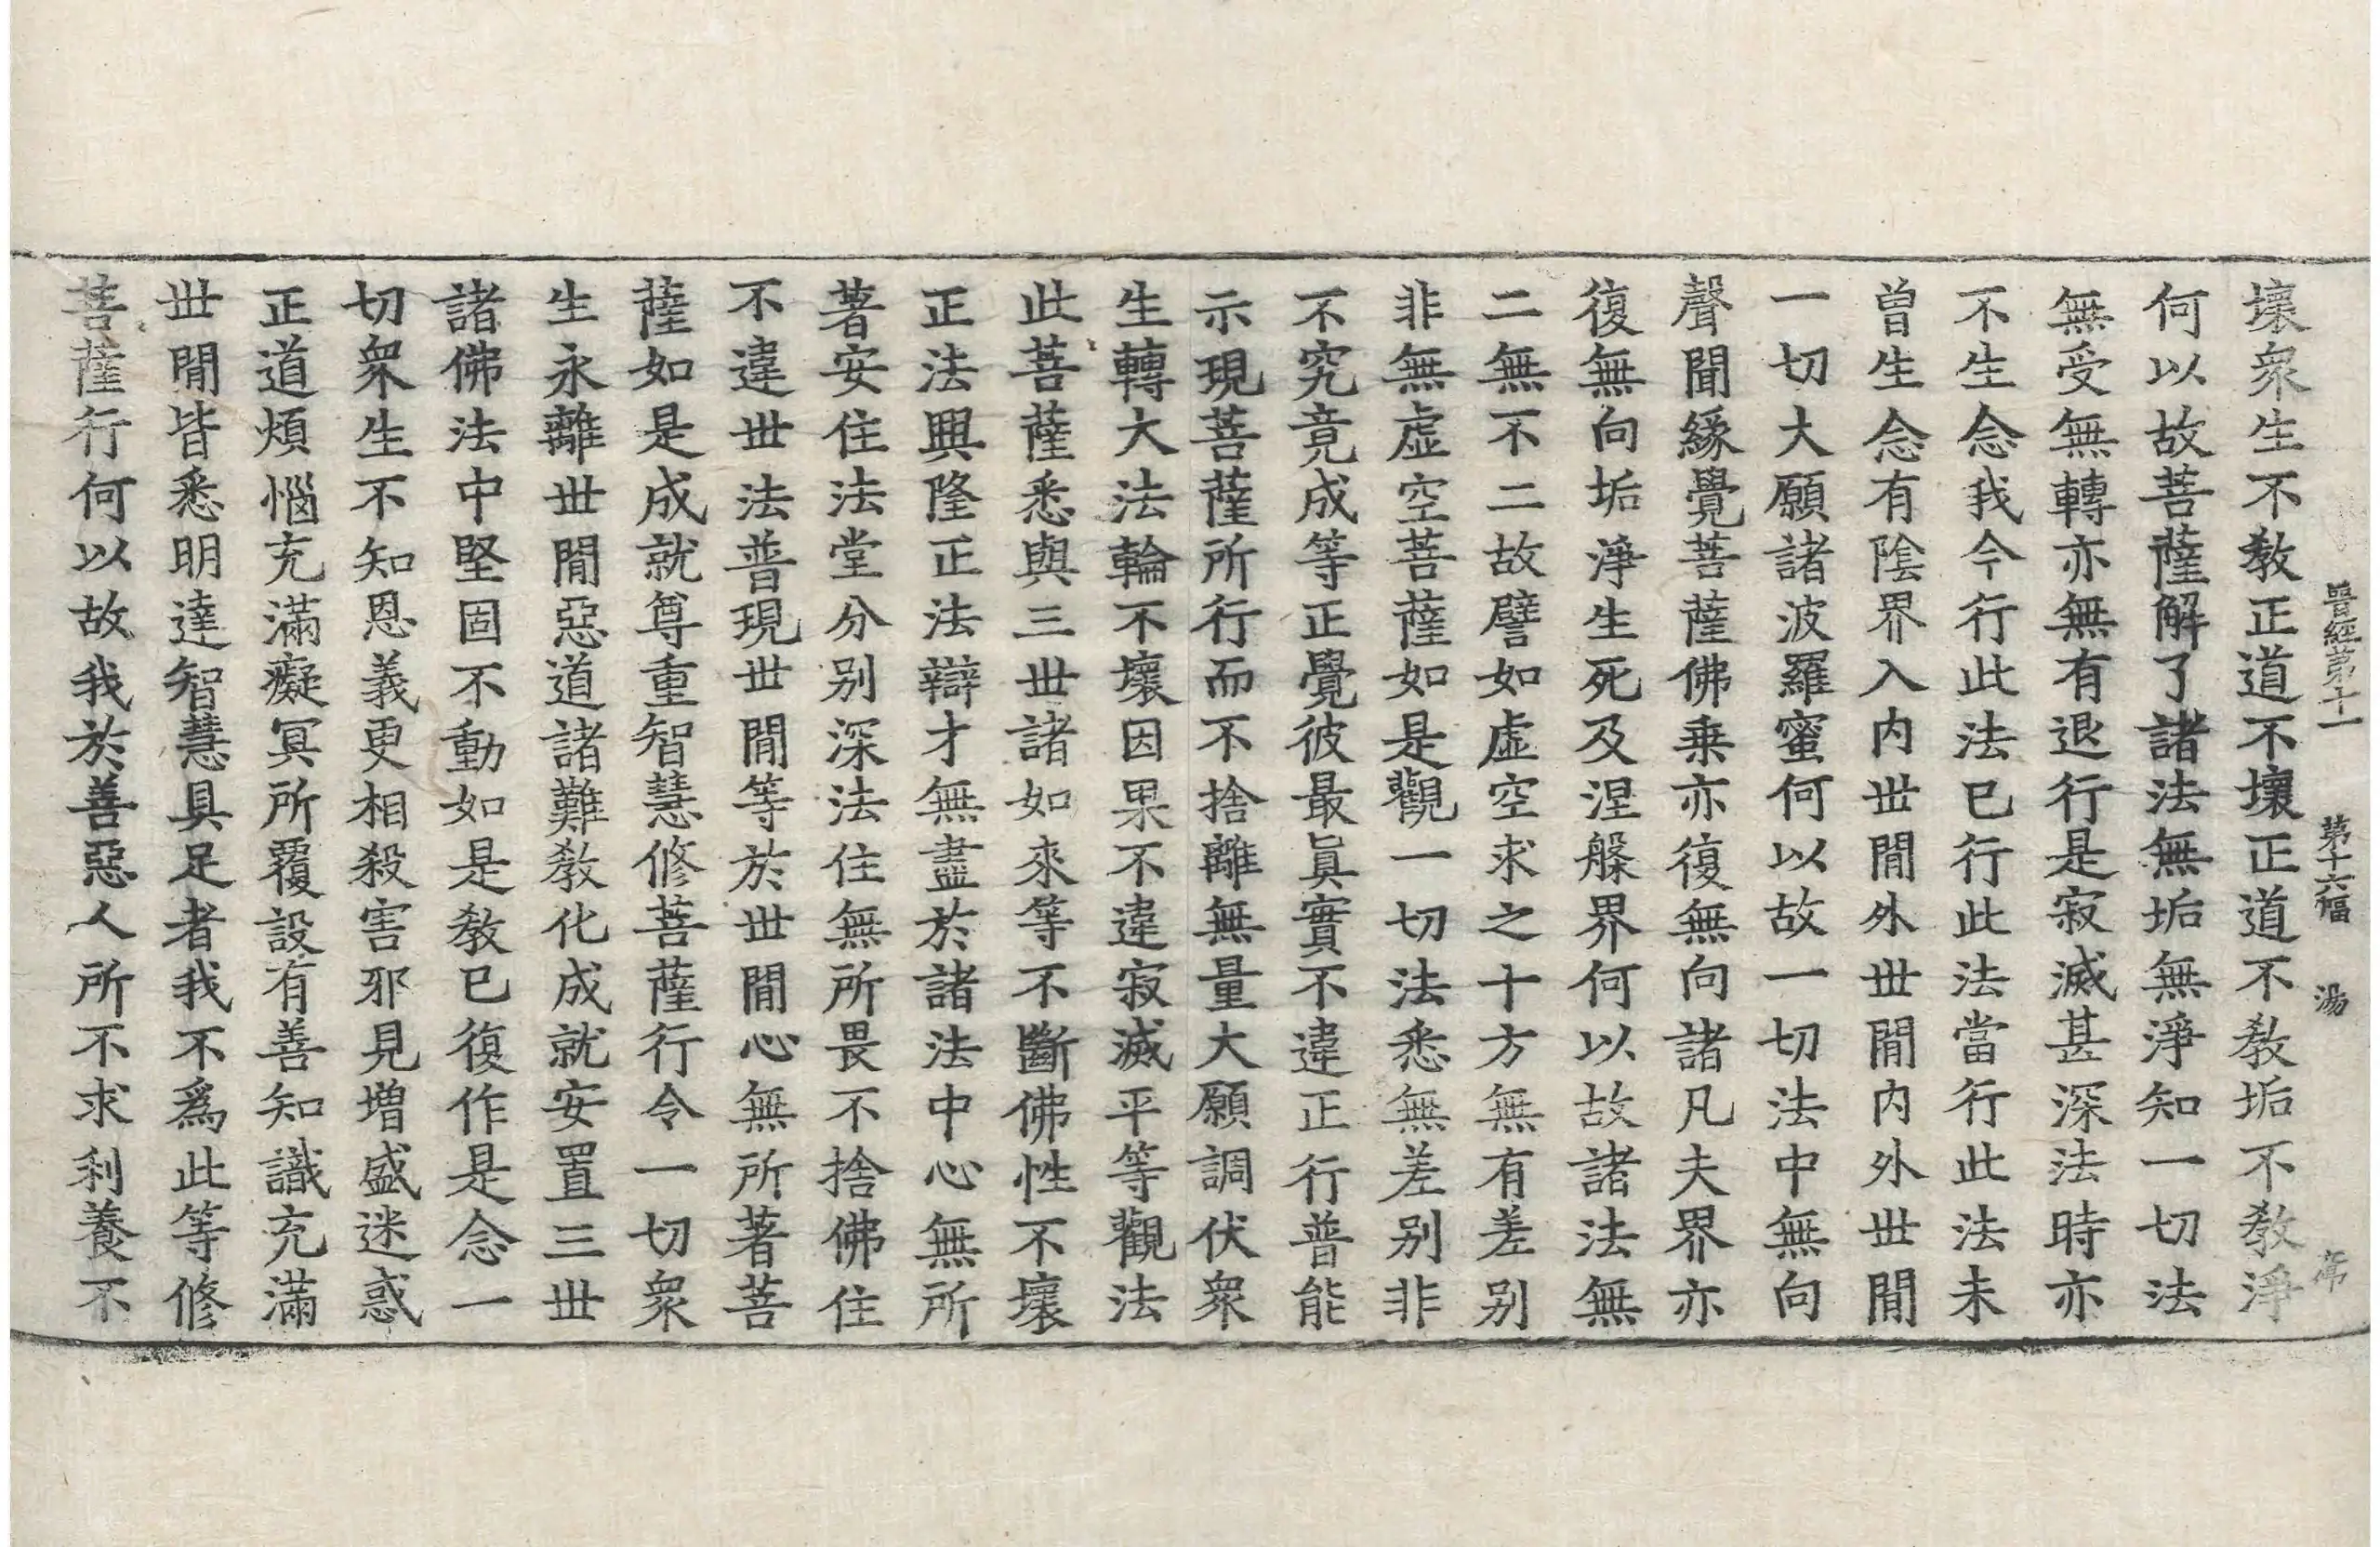 晉經第十一 第十六幅 湯
壞衆生不教正道不壞正道不教垢不教淨
何以故菩薩解了諸法無垢無淨知一切法
無受無轉亦無有退行是寂滅甚深法時亦
不生念我今行此法已行此法當行此法未
曾生念有陰界入内世間外世間内外世間
一切大願諸波羅蜜何以故一切法中無向
聲聞緣覺菩薩佛乗亦復無向諸凡夫界亦
復無向垢淨生死及涅槃界何以故諸法無
二無不二故譬如虛空求之十方無有差别
非無虛空菩薩如是觀一切法悉無差别非
不究竟成等正覺彼最眞實不違正行普能
示現菩薩所行而不捨離無量大願調伏衆
生轉大法輪不壞因果不違寂滅平等觀法
此菩薩悉與三世諸如來等不斷佛性不壞
正法興隆正法辯才無盡於諸法中心無所
著安住法堂分别深法住無所畏不捨佛住
不違世法普現世間等於世間心無所著菩
薩如是成就尊重智慧修菩薩行令一切衆
生永離世間惡道諸難教化成就安置三世
諸佛法中堅固不動如是教已復作是念一
切衆生不知恩義更相殺害邪見増盛迷惑
正道煩惱充滿癡冥所覆設有善知識充滿
世間皆悉明達智慧具足者我不爲此等修
菩薩行何以故我於善惡人所不求利養不